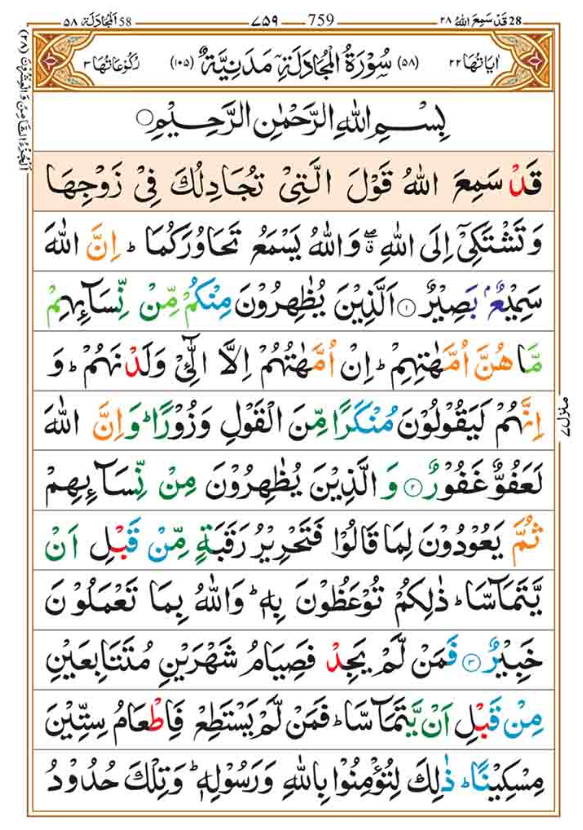 28 قَدْ سَمِعَ اللهُ ٢٨ 759 ٧٥٩ 58 اَلْمُجَادَلَة ٥٨
اٰيَاتُهَا ٢٢ (٥٨) سُوْرَةُ الْمُجَادَلَةِ مَدَنِيَّةٌ (١٠٥) رُكُوْعَاتُهَا ٣
بِسْمِ اللهِ الرَّحْمٰنِ الرَّحِيْمِ
قَدْ سَمِعَ اللهُ قَوْلَ الَّتِيْ تُجَادِلُكَ فِيْ زَوْجِهَا
وَ تَشْتَكِيْۤ اِلَى اللهِ ۖۗ وَ اللهُ يَسْمَعُ تَحَاوُرَكُمَا ؕ اِنَّ اللهَ
سَمِيْعٌۢ بَصِيْرٌ ۝۱ اَلَّذِيْنَ يُظٰهِرُوْنَ مِنْكُمْ مِّنْ نِّسَآىِٕهِمْ
مَّا هُنَّ اُمَّهٰتِهِمْ ؕ اِنْ اُمَّهٰتُهُمْ اِلَّا الّٰٓـِٔيْ وَلَدْنَهُمْ ؕ وَ
اِنَّهُمْ لَيَقُوْلُوْنَ مُنْكَرًا مِّنَ الْقَوْلِ وَزُوْرًا ؕ وَاِنَّ اللهَ
لَعَفُوٌّ غَفُوْرٌ ۝۲ وَ الَّذِيْنَ يُظٰهِرُوْنَ مِنْ نِّسَآىِٕهِمْ
ثُمَّ يَعُوْدُوْنَ لِمَا قَالُوْا فَتَحْرِيْرُ رَقَبَةٍ مِّنْ قَبْلِ اَنْ
يَّتَمَآسَّا ؕ ذٰلِكُمْ تُوْعَظُوْنَ بِهٖ ؕ وَاللهُ بِمَا تَعْمَلُوْنَ
خَبِيْرٌ ۝۳ فَمَنْ لَّمْ يَجِدْ فَصِيَامُ شَهْرَيْنِ مُتَتَابِعَيْنِ
مِنْ قَبْلِ اَنْ يَّتَمَآسَّا ؕ فَمَنْ لَّمْ يَسْتَطِعْ فَاِطْعَامُ سِتِّيْنَ
مِسْكِيْنًا ؕ ذٰلِكَ لِتُؤْمِنُوْا بِاللهِ وَرَسُوْلِهٖ ؕ وَتِلْكَ حُدُوْدُ
اَلْجُزْءُ الثَّامِنُ وَالْعِشْرُوْنَ (٢٨)
منزل ٧